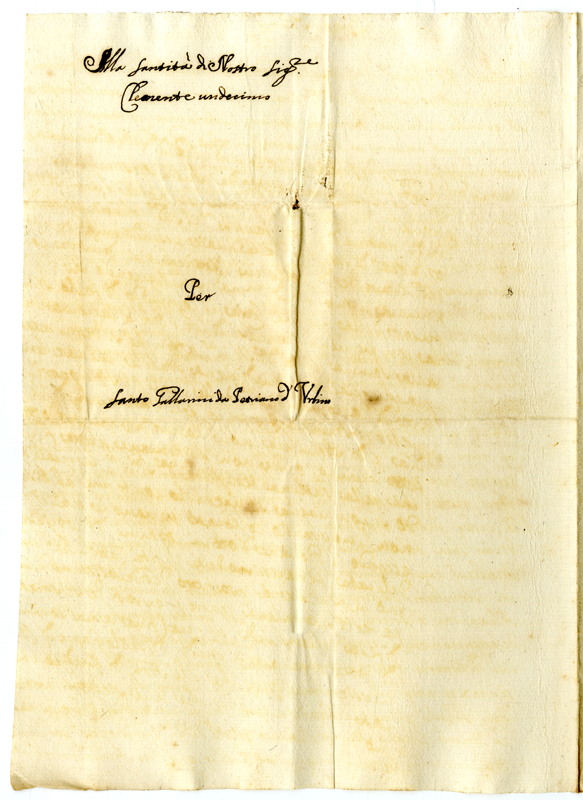 Alla Santità di Nostro Sig.re
Clemente undecimo
Per
Santo Pallarini da Petriano d' Urbino